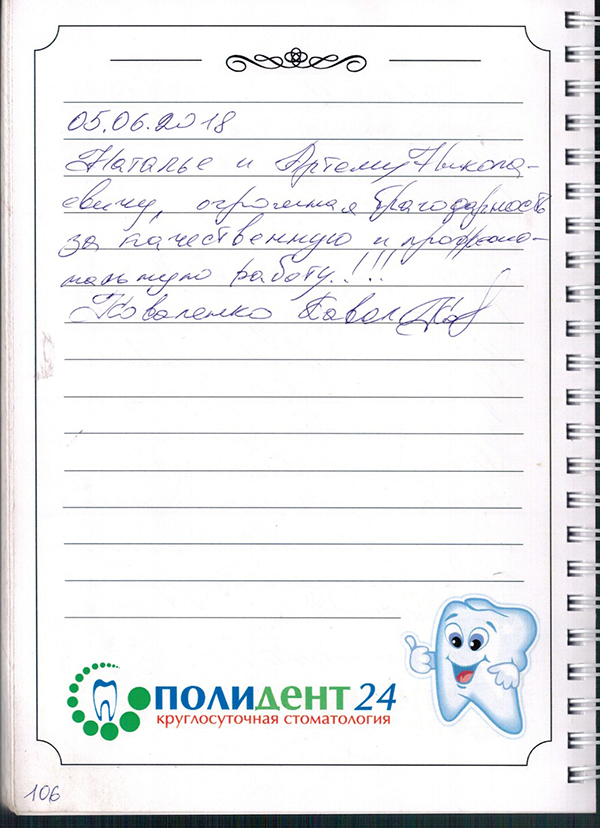 05.06.2018
Наталье и Артему Никола-
евичу, огромная благодарность
за качественную и професио-
нальную работу.!!!
Коваленко Павел
ПОЛИДЕНТ 24
круглосуточная стоматология
106